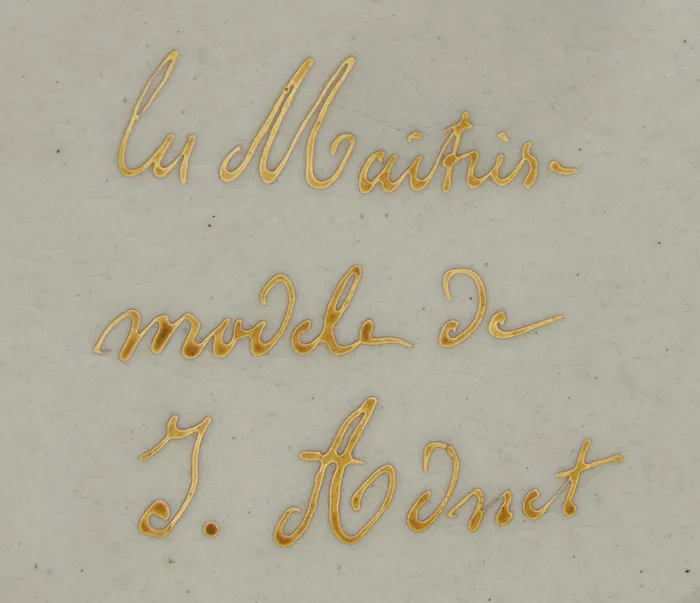 la Maitrise
modele de
J. Adnet